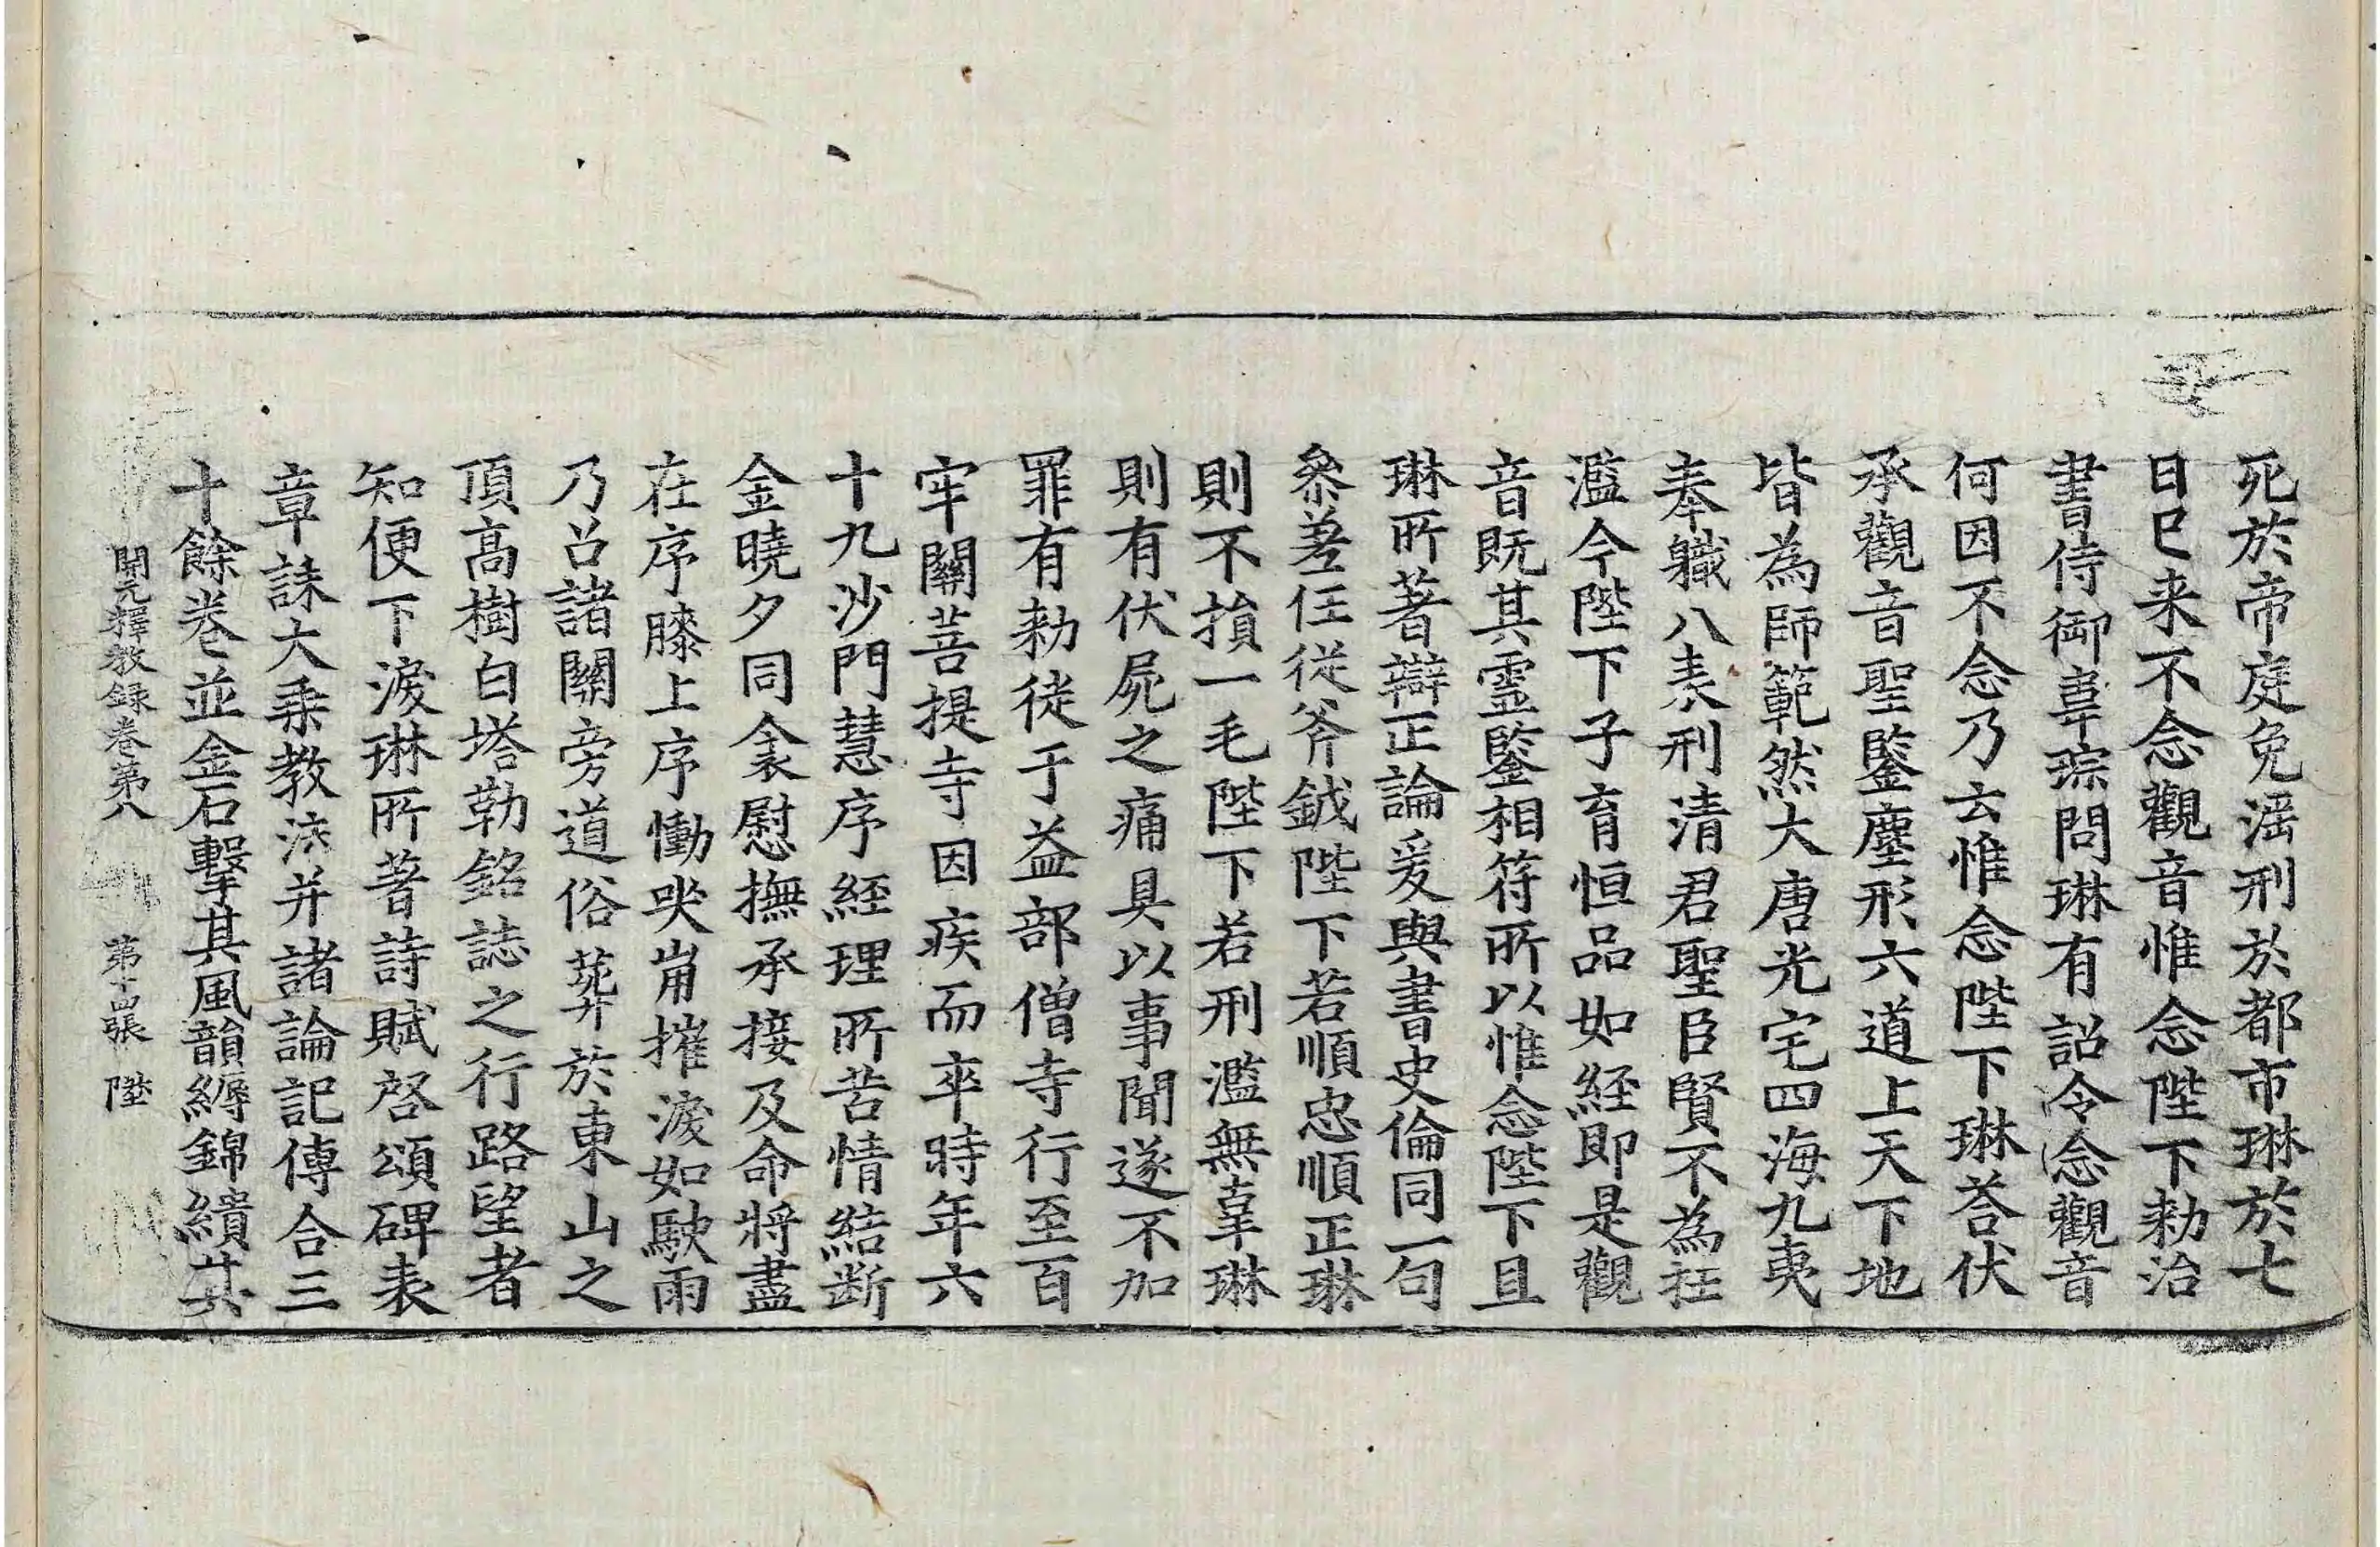 死於帝庭免滛刑於都市琳於七
日已来不念觀音惟念陛下勑治
書侍御韋琮問琳有詔令念觀音
何因不念乃云惟念陛下琳荅伏
承觀音聖鑒塵形六道上天下地
皆為師範然大唐光宅四海九夷
奉軄八表刑清君聖臣賢不為枉
濫今陛下子育恒品如経即是觀
音既其霊鑒相符所以惟念陛下且
琳所著辯正論爰與書史倫同一句
叅差任従斧鉞陛下若順忠順正琳
則不損一毛陛下若刑濫無辜琳
則有伏屍之痛具以事聞遂不加
罪有勑徙于益部僧寺行至百
牢關菩提寺因疾而卒時年六
十九沙門慧序経理所苦情結断
金曉夕同衾慰撫承接及命將盡
在序膝上序慟哭崩摧淚如駛雨
乃召諸關旁道俗葬於東山之
頂高樹白塔勒銘誌之行路望者
知便下淚琳所著詩賦啓頌碑表
章誄大乗教法并諸論記傳合三
十餘卷並金石擊其風韻縟錦繢其
開元釋教録卷第八 第十四張 陛